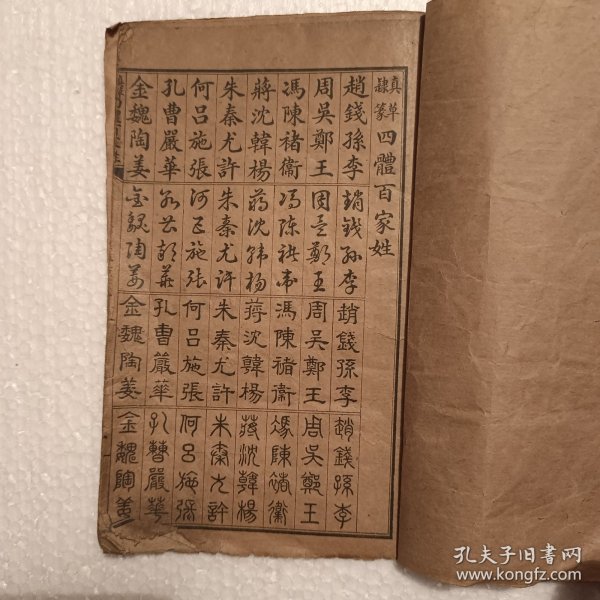 真草
隸篆
四體百家姓
趙錢孫李
周吳鄭王
馮陳褚衛
蔣沈韓楊
朱秦尤許
何呂施張
孔曹嚴華
金魏陶姜
趙錢孫李
周吳鄭王
馮陳褚衛
蔣沈韓楊
朱秦尤許
何呂施張
孔曹嚴華
金魏陶姜
趙錢孫李
周吳鄭王
馮陳褚衛
蔣沈韓楊
朱秦尤許
何呂施張
孔曹嚴華
金魏陶姜
趙錢孫李
周吳鄭王
馮陳褚衛
蔣沈韓楊
朱秦尤許
何呂施張
孔曹嚴華
金魏陶姜
孔夫子旧书网
www.kongfz.com